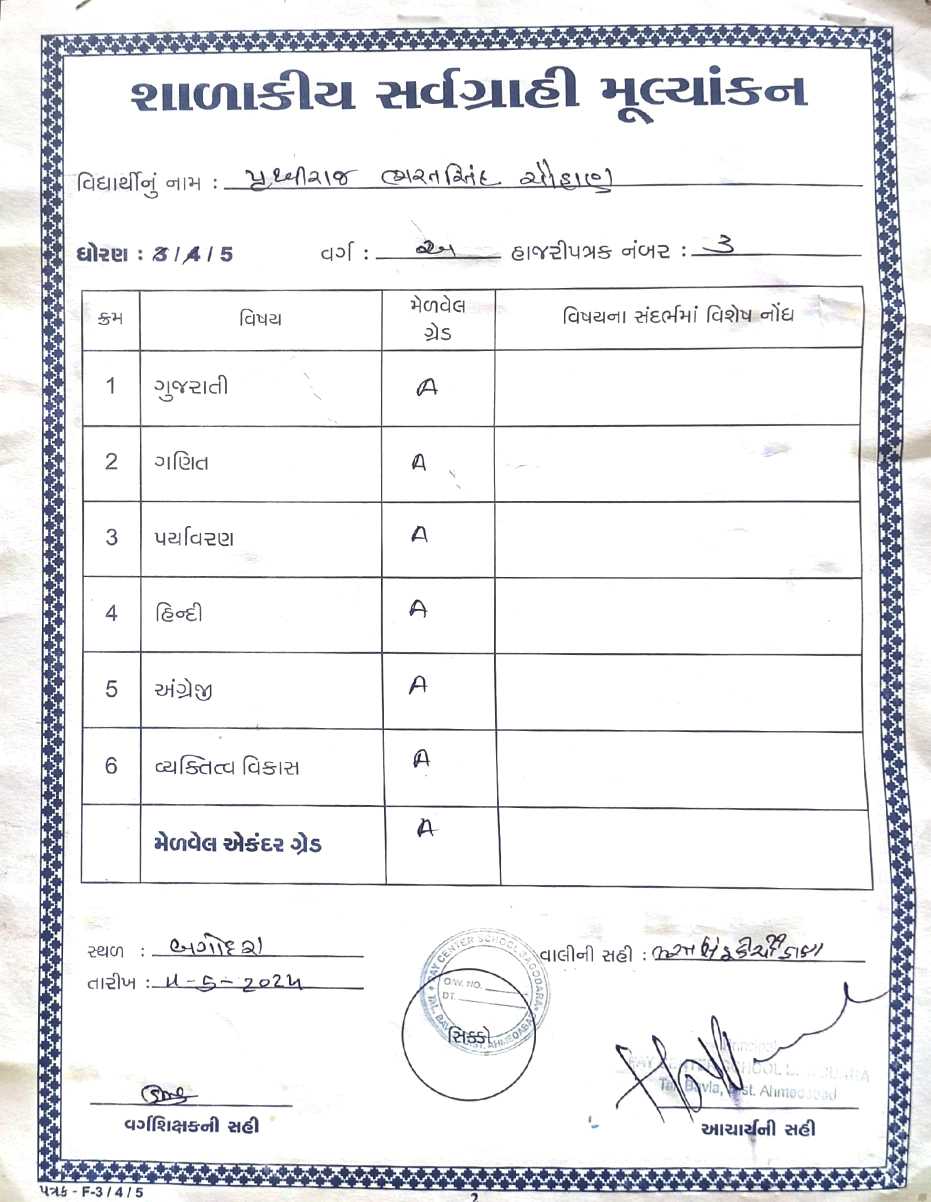 શાળાકીય સર્વગ્રાહી મૂલ્યાંકન
વિદ્યાર્થીનું નામ : પૃથ્વીરાજ ભરતસિંહ ચૌહાણ
ધોરણ : 3 / 4 / 5 વર્ગ : અ હાજરીપત્રક નંબર : 3
ક્રમ વિષય મેળવેલ ગ્રેડ વિષયના સંદર્ભમાં વિશેષ નોંધ
1 ગુજરાતી A
2 ગણિત A
3 પર્યાવરણ A
4 હિન્દી A
5 અંગ્રેજી A
6 વ્યક્તિત્વ વિકાસ A
મેળવેલ એકંદર ગ્રેડ A
સ્થળ : બગોદરા વાલીની સહી :
તારીખ : ૫-૬-૨૦૨૫
PAY CENTER SCHOOL BAGODARA
O/W. NO.
DT.
TAL. BAVLA DIST. AHMEDABAD
સિક્કો
Principal
PAY CENTER SCHOOL
Tal. Bavla, Dist. Ahmedabad
વર્ગશિક્ષકની સહી આચાર્યની સહી
પત્રક - F-3 / 4 / 5
2